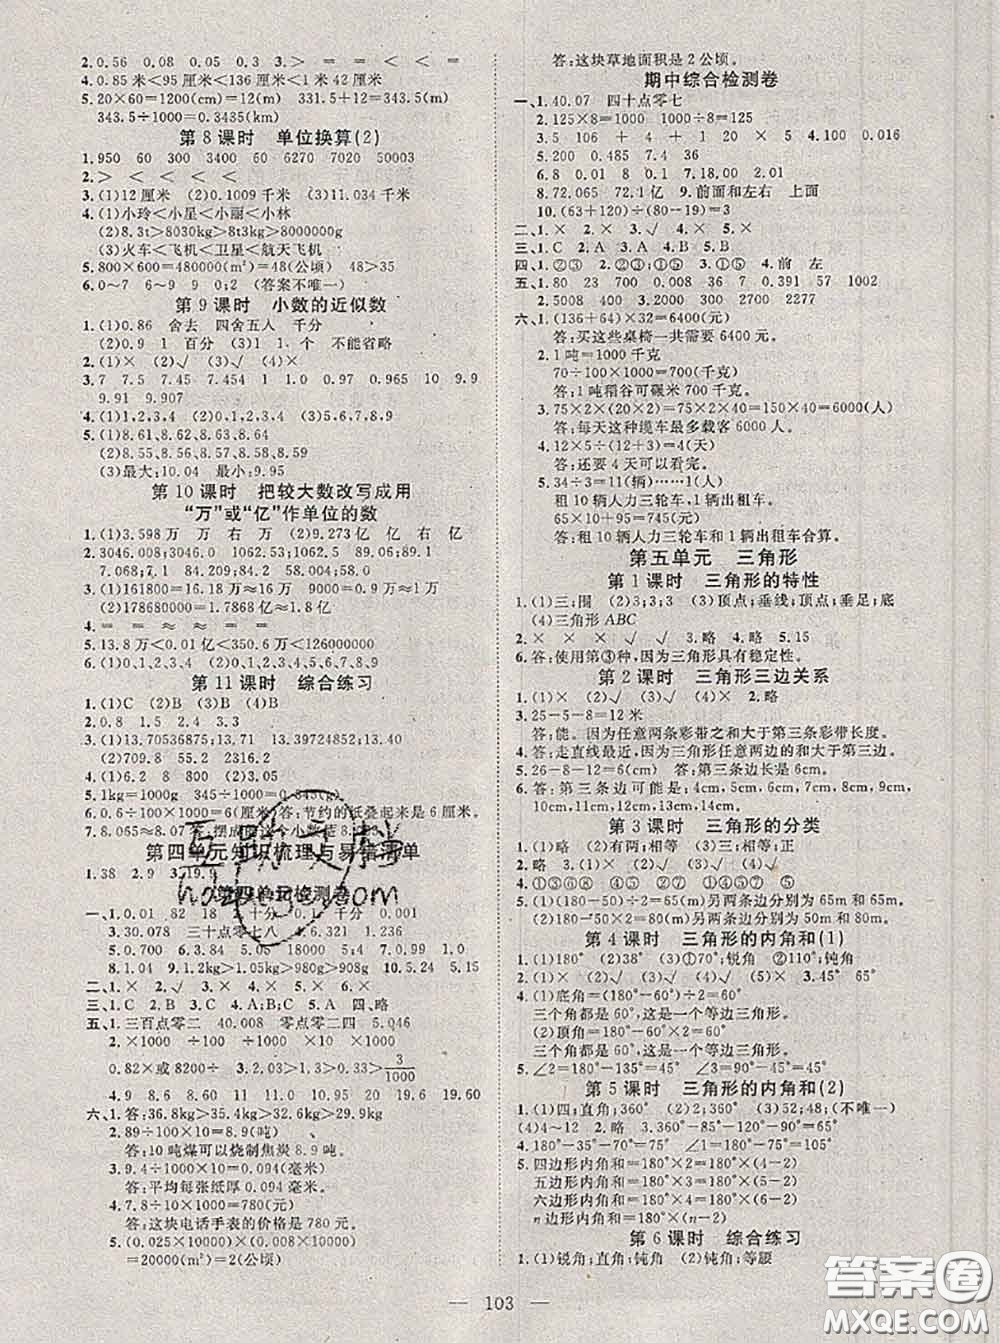 2.0.56 0.08 0.03 3.> = < < < =
4.0.85米<95厘米<136厘米<1米42厘米
5.20×60=1200(cm)=12(m) 331.5+12=343.5(m)
343.5÷1000=0.3435(km)
第8课时 单位换算(2)
1.950 60 300 3400 60 6270 7020 50003
2.> < < < <
3.(1)12厘米 (2)0.1009千米 (3)11.034千米
4.(1)小玲<小星<小丽<小林
(2)8.3t>8030kg>8t3kg>830kg
(3)火车<飞机<卫星<航天飞机
5.800×600=480000(m²)=48(公顷) 48>35
6.0~7 6~9 9 0~2 (答案不唯一)
第9课时 小数的近似数
1.(1)0.86 舍去 四舍五入 千分
(2)0.9 1 百分 (3)1、个 不能省略
2.(1)× (2)√ (3)√ (4)×
3.7 7.5 7.45 7.450 1 1.0 0.97 0.965 10 9.9
9.91 9.907
4.(1)1,2,3,4 (2)0,1,2,3,4 (3)5,6,7,8,9
5.(1)8.61,8.62,8.63,8.64
(2)8.55,8.56,8.57,8.58,8.59
(3)最大:10.04 最小:9.95
第10课时 把较大数改写成用
“万”或“亿”作单位的数
1.(1)3.598万 万 右 万 (2)9.273亿 亿 右 亿
2.3046.008;3046.0 1008.6;1008.60 9.108;9.11
7.068;7.1 67.85;67.9 0.8235;0.82
3.(1)161800=16.18万≈16.2万
(2)178680000=1.7868亿≈1.79亿
4.= = = =
5.13.8万<0.01亿<350.6万<126000000
6.(1)0、1、2、3、4 (2)5、6、7、8、9
第11课时 综合练习
1.(1)C (2)D (3)B (4)B
2.0.8 1.5 2.4 3.3
3.(1)13.70536875;13.71 13.39724852;13.40
(2)709.8 55.2 2316.2
4.(1)0.16 6.2 8 800 (2)√ × √
5.1kg=1000g 345÷1000=0.345(g)
6.0.6÷100×1000=6(厘米) 答:节约的纸叠起来是6厘米。
7.8.065≈8.07
第四单元知识梳理与易错清单
1.38 2.9 3.19.9
第四单元检测卷
一、1.0.01 82 18 2.十分 0.1 千分 0.001
3.30.078 三十点零七八 4.6.321 1.236
5.0.700 6.3.84 5.05 18000 7.0.49 0.50
8.1.04 9.1.2kg>1.05kg>980g>908g 10.5.24 5.15
二、1.× 2.√ 3.× 4.√ 5.× 6.×
三、1.C 2.B 3.A 4.A;C;B 5.A 四、略
五、1.三百点零二 40.008 零点零二四 5.046
2.×1000 ÷100 ÷1000 ×100
0.82×或8200÷ 3.2.03>1.32>0.33>3/1000
4.9 8.9 8.60 11 11.0 10.95 20 19.6 19.60
六、1.答:36.8kg>35.4kg>32.6kg>31.6kg>29.9kg
2.89÷100×10=8.9(吨)
答:10吨煤可以烧制焦炭8.9吨。
3.9.4÷1000×10=0.094(毫米)
答:平均每张纸厚0.094毫米。
4.7.8÷10×1000=780(元)
答:这块电话手表的价格是780元。
5.(0.025×10000)×(0.008×10000)
=20000(m²)=2(公顷)
答:这块草地面积是2公顷。
期中综合检测卷
一、1.40.07 四十点零七
2.125×8=1000 1000÷8=125
3.5 106 + 4 + 1 20 × 5 4.0.100 0.016
5.200 0.485 7.154 700
6.8 0.8 0.01 7.8 9 8.91
8.72.065 72.1亿 9.前面和左右 上面
10.(63+120)÷(80-19)=3
二、1.× 2.× 3.√ 4.√ 5.×
三、1.C 2.A 3.B 4.A 5.C
四、1.②③ 2.①⑤ 3.①⑤ 4.前 左
五、1.80 23 700 0.08 3.7 0.391 57 1002
2.5008 8 1110 102
六、1.(136+64)×32=6400(元)
答:买这些桌椅一共需要6400元。
2.1吨=1000千克
70÷100×1000=700(千克)
答:1吨稻谷可碾米700千克。
3.75×2×(20×2)=75×2×40=150×40=6000(人)
答:每天这种缆车最多载客6000人。
4.12×5÷(12+3)=4(天)
答:还要4天可以看完。
5.34÷3=11(辆)……1(人)
租10辆人力三轮车,1辆出租车。
65×10+95=745(元)
答:租10辆人力三轮车和1辆出租车合算。
第五单元 三角形
第1课时 三角形的特性
1.(1)三;围 (2)3;3;3 (3)顶点;垂线;顶点;垂足;底
(4)三角形ABC
2.× × × √ √ 3.略 4.略 5.15
6.答:使用第③种,因为三角形具有稳定性。
第2课时 三角形三边关系
1.(1)× (2)√ (3)√ (4)× 2.略
3.25-5-8=12米
答:能。因为任意两条彩带之和大于第三条彩带长度。
4.答:走直线最近。因为三角形任意两边的和大于第三边。
5.26-8-12=6(cm) 答:第三条边长是6cm。
6.答:第三条边可能是:4cm,5cm,6cm,7cm,8cm,9cm,
10cm,11cm,12cm,13cm,14cm。
第3课时 三角形的分类
1.(1)锐角 (2)有两;相等 (3)三;相等;正
2.略 3.× √ × × √
4.①④⑤⑥ ② ③ ①④⑥ ⑥ 5.略
6.(1)180-65×2=50(m) 答:另两条边分别为65m和50m。
(2)(180-50)÷2=65(m) 答:另两条边分别为65m和65m。
第4课时 三角形的内角和(1)
1.(1)180° (2)38° (3)①70°;锐角 ②110°;钝角
2.(1)× (2)× (3)√ (4)√ 3.45° 65°
4.(1)底角=(180°-60°)÷2=60°
三个角都是60°,这是一个等边三角形。
(2)顶角=180°-60°-60°=60°
三个角都是60°,这是一个等边三角形。
5.∠2=180°-135°=45° ∠1=180°-90°-45°=45°
第5课时 三角形的内角和(2)
1.(1)四;直角;360° (2)180°;360° (3)2;2;(不唯一)
(4)4-12 2.略 3.360°-85°-90°-120°=65°
4.180°-35°-70°=75° ∠1=180°-75°=105°
5.四边形内角和=180°×2=180°×(4-2)
五边形内角和=180°×3=180°×(5-2)
六边形内角和=180°×4=180°×(6-2)
n边形内角和=180°×(n-2)
第6课时 综合练习
1.(1)锐角;直角;钝角 (2)钝角;等腰
103
答案圈
MXQE.COM